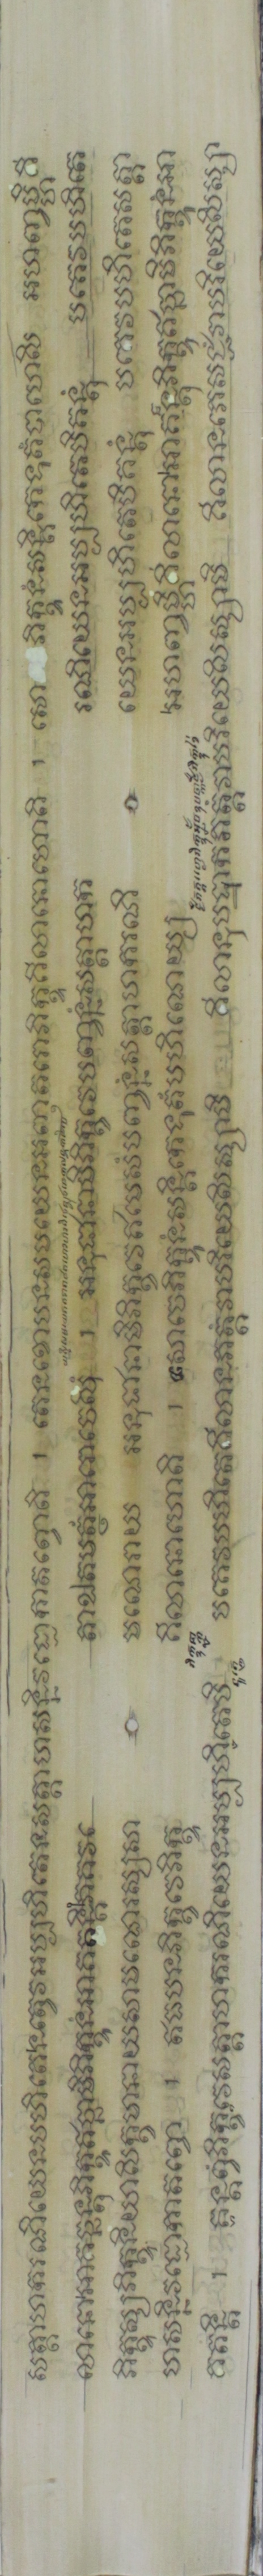 សត្តាហករណីយេន បហិតេន ត្វេវ អប្បហិតេន សត្តាហសន្និវដ្ដោ កាតព្វោតិ ។ តេន ខោ បន សមយេន អញ្ញតរោ ភិក្ខុ គិលានោ ហោតិ ។ សោ ភិក្ខូនំ សន្តិកេ ទុតំ បាហេសិ អហញ្ហិ គិ
លានោ អាគច្ឆន្តុ ភិក្ខូ ឥច្ឆាមិ ភិក្ខូនំ អាគតន្តិ ភគវ តា ឯតមត្ថំ អារោចេសុំ ។ អនុជានាមិ ភិក្ខវេ បញ្ចន្នំ សត្តាហក រណីយេន អប្បហិតេបិ គន្តុំ បគេវ បហិតេ
ភិក្ខុស្ស ភិក្ខុនិយា សិក្ខមានាយ សាមណេរស្ស សា មណេរាយ អនុជានាមិ ភិក្ខវេ ឥមេសំ បញ្ចន្នំ សត្តាហករណី យេន អប្បហិតេបិ គន្តុំ បគេវ បហិតេ សត្តា
ហសន្និវដ្ដោ កាតព្វោ ។ ឥធ បន ភិក្ខវេ ភិក្ខុ គិលានោ ហោតិ ។ សោ ចេ ភិក្ខូនំ សន្តិកេ ទុតំ បហិណេយ្យ អហញ្ហិ គិលានោ អាគច្ឆន្តុ ភិក្ខូ ឥច្ឆាមិ ភិក្ខូនំ អា
គតន្តិ ។ គន្តព្វំ ភិក្ខវេ សត្តាហករណីយេន អប្បហិតេបិ បគេវ បហិតេ គិលានភត្តំ វា បរិយេសិស្សាមិ គិលានុបដ្ឋាកភត្តំ វា បរិយេសិស្សាមិ គិលានភេសជ្ជំ វា បរិយេសិស្សា